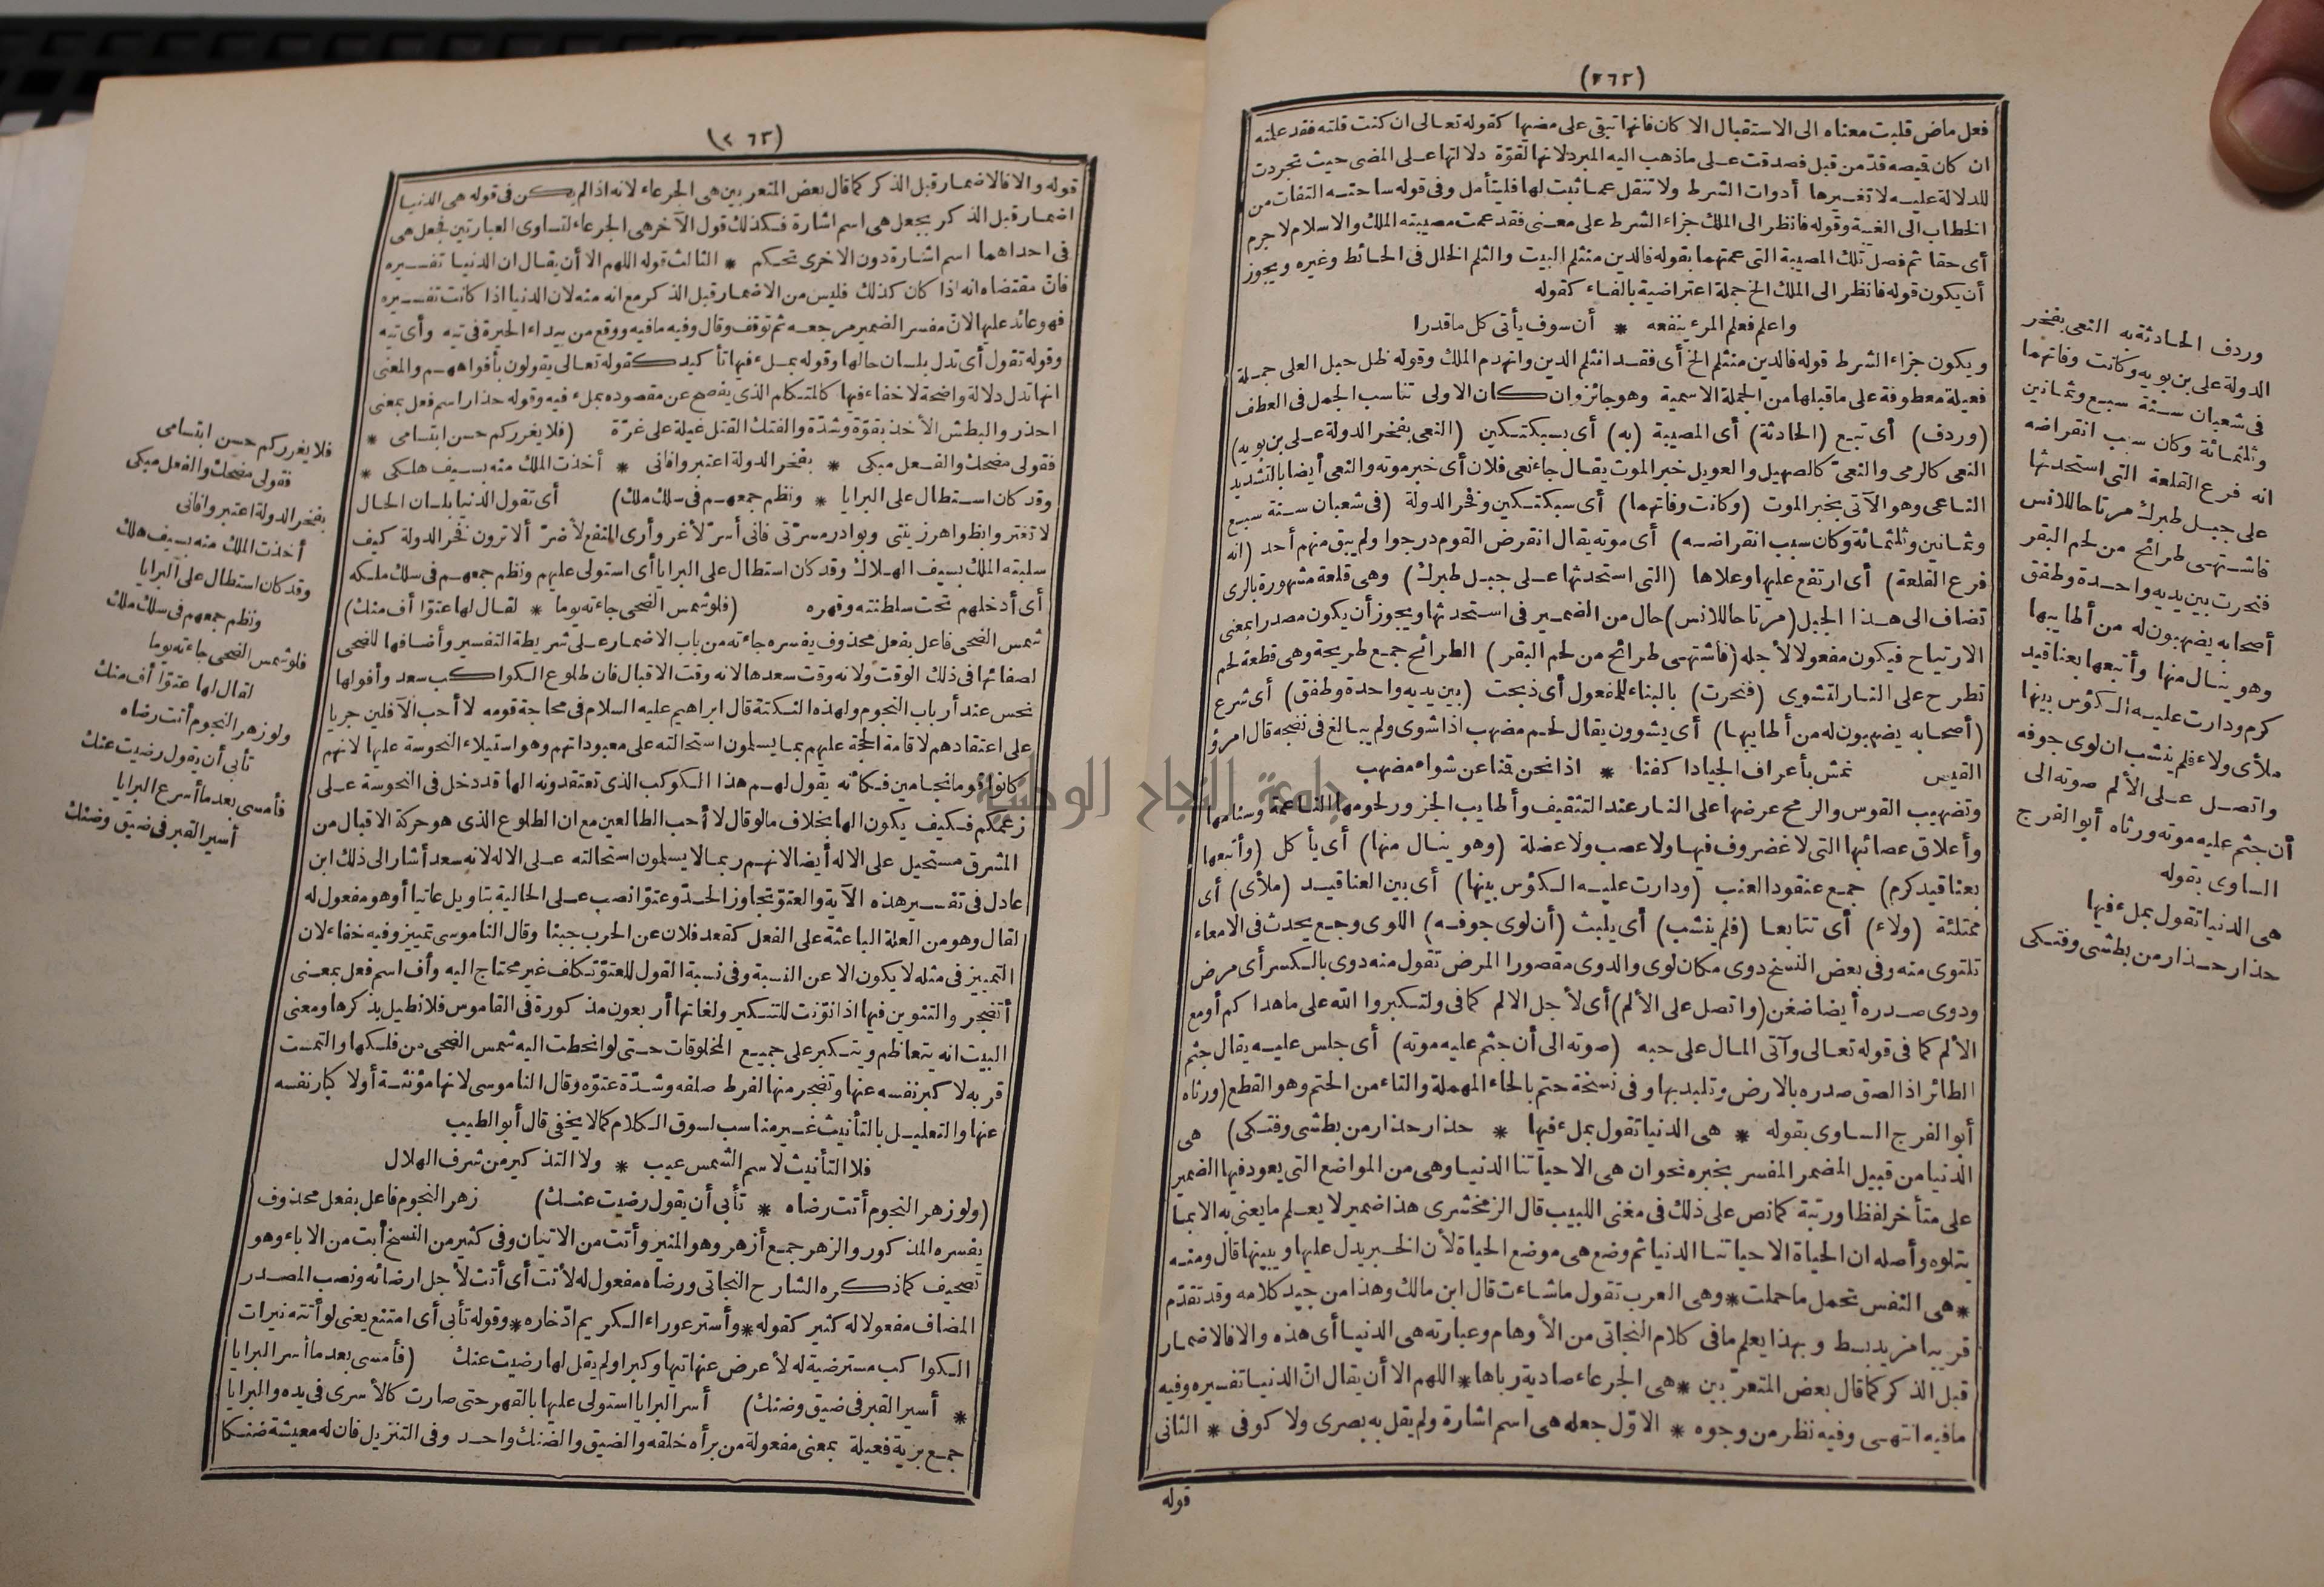 (٢٦٢)
فعل ماض قلبت معناه الى الاستقبال الا كان فانها تبقى على مضيها كقوله تعالى ان كنت قلته فقد علمته
ان كان قميصه قدّ من قبل فصدقت على ما ذهب اليه المبرد لانها لقوّة دلالتها على المضى حيث تجردت
للدلالة عليه لا تغيرها أدوات الشرط ولا تنقل عما ثبت لها فليتأمل وفى قوله ساحته التفات من
الخطاب الى الغيبة وقوله فانظر الى الملك جزاء الشرط على معنى فقد عمت مصيبته الملك والاسلام لا جرم
أى حقا ثم فصل تلك المصيبة التى عمتهما بقوله فالدين منثلم البيت والثلم الخلل فى الحائط وغيره ويجوز
أن يكون قوله فانظر الى الملك الخ جملة اعتراضية بالفاء كقوله
واعلم فعلم المرء ينفعه * أن سوف يأتى كل ما قدرا
ويكون جزاء الشرط قوله فالدين منثلم الخ أى فقد انثلم الدين وانهدم الملك وقوله ظل حبل العلى جملة
فعلية معطوفة على ما قبلها من الجملة الاسمية وهو جائز وان كان الاولى تناسب الجمل فى العطف
(وردف) أى تبع (الحادثة) أى المصيبة (به) أى بسبكتكين (النعى بفخر الدولة على بن بويه)
النعى كالرمى والنعىّ كالصهيل والعويل خبر الموت يقال جاء نعى فلان أى خبر موته والنعى أيضا بالتشديد
الناعى وهو الآتى بخبر الموت (وكانت وفاتهما) أى سبكتكين وفخر الدولة (فى شعبان سنة سبع
وثمانين وثلثمائة وكان سبب انقراضه) أى موته يقال انقرض القوم درجوا ولم يبق منهم أحد (انه
فرع القلعة) أى ارتفع عليها وعلاها (التى استحدثها على جبل طبرك) وهى قلعة مشهورة بالرى
تضاف الى هذا الجبل (مرتاحا للانس) حال من الضمير فى استحدثها ويجوز أن يكون مصدرا بمعنى
الارتياح فيكون مفعولا لأجله (فأشتهى طرائح من لحم البقر) الطرائح جمع طريحة وهى قطعة لحم
تطرح على النار لتشوى (فنحرت) بالبناء للمفعول أى ذبحت (بين يديه واحدة وطفق) أى شرع
(أصحابه يضهبون له من أطايبها) أى يشوون يقال لحم مضهب اذا شوى ولم يبالغ فى نضجه قال امرؤ
القيس نمش بأعراف الجياد اكفنا * اذا نحن قمنا عن شواء مضهب
وتضهيب القوس والرمح عرضها على النار عند التثقيف وأطايب الجزور لحومها الناعمة وسنامها
وأعلاق عصائبها التى لا غضروف فيها ولا عصب ولا عضلة (وهو ينال منها) أى يأكل (وأتبعها
بعناقيد كرم) جمع عنقود العنب (ودارت عليه الكؤس بينها) أى بين العناقيد (ملأى) أى
ممتلئة (ولاء) أى تتابعا (فلم ينشب) أى يلبث (أن لوى جوفه) اللوى وجع يحدث فى الامعاء
تلتوى منه وفى بعض النسخ دوى مكان لوى والدوى مقصورا المرض تقول منه دوى بالكسر أى مرض
ودوى صدره أيضا ضغن (واتصل على الألم) أى لأجل الالم كما فى ولتكبروا الله على ما هداكم أو مع
الألم كما فى قوله تعالى وآتى المال على حبه (صوته الى أن جثم عليه موته) أى جلس عليه يقال جثم
الطائر اذا لصق صدره بالارض وتلبد بها وفى نسخة حتم بالحاء المهملة والتاء من الحتم وهو القطع (ورثاه
أبو الفرج الساوى بقوله * هى الدنيا تقول بملء فيها * حذار حذار من بطشى وفتكى) هى
الدنيا من قبيل المضمر المفسر بخبره نحو ان هى الا حياتنا الدنيا وهى من المواضع التى يعود فيها الضمير
على متأخر لفظا ورتبة كما نص على ذلك فى مغنى اللبيب قال الزمخشرى هذا ضمير لا يعلم ما يعنى به الا بما
يتلوه وأصله ان الحياة الا حياتنا الدنيا ثم وضع هى موضع الحياة لأن الخبر يدل عليها ويبينها قال ومنه
*هى النفس تحمل ما حملت*وهى العرب تقول ما شاءت قال ابن مالك وهذا من جيد كلامه وقد تقدّم
قريبا مزيد بسط وبهذا يعلم ما فى كلام النجاتى من الأوهام وعبارته هى الدنيا أى هذه والا فالاضمار
قبل الذكر كما قال بعض المتعرّ بين *هى الجرعاء صادية رباها*اللهم الا أن يقال انّ الدنيا تفسيره وفيه
ما فيه انتهى وفيه نظر من وجوه * الاوّل جعله هى اسم اشارة ولم يقل به بصرى ولا كوفى * الثانى
قوله
وردف الحادثة به النعى بفخر
الدولة على بن بويه وكانت وفاتهما
فى شعبان سنة سبع وثمانين
وثلثمائة وكان سبب انقراضه
انه فرع القلعة التى استحدثها
على جبل طبرك مرتاحا للانس
فاشتهى طرائح من لحم البقر
فنحرت بين يديه واحدة وطفق
أصحابه يضهبون له من أطايبها
وهو ينال منها وأتبعها بعناقيد
كرم ودارت عليه الكؤس بينها
ملأى ولاء فلم ينشب ان لوى جوفه
واتصل على الألم صوته الى
أن جثم عليه موته ورثاه أبو الفرج
الساوى بقوله
هى الدنيا تقول بملء فيها
حذار حذار من بطشى وفتكى
(٢٦٣)
قوله والا فالاضمار قبل الذكر كما قال بعض المتعربين هى الجرعاء لانه اذا لم يكن فى قوله هى الدنيا
اضمار قبل الذكر بجعل هى اسم اشارة فكذلك قول الآخر هى الجرعاء لتساوى العبارتين فجعل هى
فى احداهما اسم اشارة دون الاخرى تحكم * الثالث قوله اللهم الا أن يقال ان الدنيا تفسيره
فانّ مقتضاه انه اذا كان كذلك فليس من الاضمار قبل الذكر مع انه منه لان الدنيا اذا كانت تفسيره
فهو عائد عليها لانّ مفسر الضمير مرجعه ثم توقف وقال وفيه ما فيه ووقع من بيداء الحيرة فى تيه وأى تيه
وقوله تقول أى تدل بلسان حالها وقوله بملء فيها تأكيد كقوله تعالى يقولون بأفواههم والمعنى
انها تدل دلالة واضحة لا خفاء فيها كالمتكلم الذى يفصح عن مقصوده بملء فيه وقوله حذار اسم فعل بمعنى
احذر والبطش الأخذ بقوّة وشدّة والفتك القتل غيلة على غرّة (فلا يغرركم حسن ابتسامى *
فقولى مضحك والفعل مبكى * بفخر الدولة اعتبروا فانى * أخذت الملك منه بسيف هلكى *
وقد كان استطال على البرايا * ونظم جمعهم فى سلك ملك) أى تقول الدنيا بلسان الحال
لا تغتروا بظواهر زينتى وبوادر مسرّتى فانى أسرّ لأغر وأرى النفع لأضرّ ألا ترون فخر الدولة كيف
سلبته الملك بسيف الهلاك وقد كان استطال على البرايا أى استولى عليهم ونظم جمعهم فى سلك ملكه
أى أدخلهم تحت سلطنته وقهره (فلو شمس الضحى جاءته يوما * لقال لها عتوّا أف منك)
شمس الضحى فاعل بفعل محذوف يفسره جاءته من باب الاضمار على شريطة التفسير وأضافها للضحى
لصفائها فى ذلك الوقت ولانه وقت سعدها لانه وقت الاقبال فان طلوع الكواكب سعد وأفولها
نحس عند أرباب النجوم ولهذه النكتة قال ابراهيم عليه السلام فى محاجة قومه لا أحب الآفلين جريا
على اعتقادهم لاقامة الحجة عليهم بما يسلمون استحالته على معبوداتهم وهو استيلاء النحوسة عليها لانهم
كانوا قوما نجامين فكأنه يقول لهم هذا الكوكب الذى تعتقدونه الها قد دخل فى النحوسة على
زعمكم فكيف يكون الها بخلاف ما لو قال لا أحب الطالعين مع ان الطلوع الذى هو حركة الاقبال من
المشرق مستحيل على الاله أيضا لانهم ربما لا يسلمون استحالته على الاله لانه سعد أشار الى ذلك ابن
عادل فى تفسير هذه الآية والعتوّ تجاوز الحدّ وعتوّا نصب على الحالية بتاويل عاتيا أو هو مفعول له
لقال وهو من العلة الباعثة على الفعل كقعد فلان عن الحرب جبنا وقال الناموسى تمييز وفيه خفاء لان
التمييز فى مثله لا يكون الا عن النسبة وفى نسبة القول للعتوّ تكلف غير محتاج اليه وأف اسم فعل بمعنى
أتضجر والتنوين فيها اذا نوّنت للتنكير ولغاتها أربعون مذكورة فى القاموس فلا نطيل بذكرها ومعنى
البيت انه يتعاظم ويتكبر على جميع المخلوقات حتى لو انحطت اليه شمس الضحى من فلكها والتمست
قربه لاكبر نفسه عنها وتضجر منها لفرط صلفه وشدّة عتوّه وقال الناموسى لانها مؤنثة أو لاكبار نفسه
عنها والتعليل بالتأنيث غير مناسب لسوق الكلام كما لا يخفى قال أبو الطيب
فلا التأنيث لاسم الشمس عيب * ولا التذكير من شرف الهلال
(ولو زهر النجوم أتت رضاه * تأبى أن يقول رضيت عنك) زهر النجوم فاعل بفعل محذوف
يفسره المذكور والزهر جمع أزهر وهو المنير وأتت من الاتيان وفى كثير من النسخ أبت من الاباء وهو
تصحيف كما ذكره الشارح النجاتى ورضاه مفعول له لأتت أى أتت لأجل ارضائه ونصب المصدر
المضاف مفعولا له كثير كقوله*وأستر عوراء الكريم ادّخاره*وقوله تأبى أى امتنع يعنى لو أتته نيرات
الكواكب مسترضية له لأعرض عنها تيها وكبرا ولم يقل لها رضيت عنك (فأمسى بعد ما أسر البرايا
* أسير القبر فى ضيق وضنك) أسر البرايا استولى عليها بالقهر حتى صارت كالأسرى فى يده والبرايا
جمع برية فعيلة بمعنى مفعولة من برأه خلقه والضيق والضنك واحد وفى التنزيل فان له معيشة ضنكا
فلا يغرركم حسن ابتسامى
فقولى مضحك والفعل مبكى
بفخر الدولة اعتبروا فانى
أخذت الملك منه بسيف هلك
وقد كان استطال على البرايا
ونظم جمعهم فى سلك ملك
فلو شمس الضحى جاءته يوما
لقال لها عتوّا أف منك
ولو زهر النجوم أتت رضاه
تأبى أن يقول رضيت عنك
فأمسى بعد ما أسر البرايا
أسير القبر فى ضيق وضنك
جامعة النجاح الوطنية